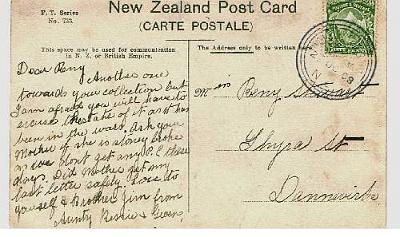 F. T. Series
No. 733.
New Zealand Post Card
(CARTE POSTALE)
This space may be used for communication
in N. Z. or British Empire.
The Address only to be written
Dear Reny
Another one
towards your collection but
I am afraid you will have to
excuse the state of it as it has
been in the wars. Ask your
Mother if she is stoney broke
as we don't get any P.C these
days. Did Mother get my
last letter safely. Love to
yourself & Brother Jim from
Aunty Bessie &
Miss Reny Stewart
St
Dannevirke